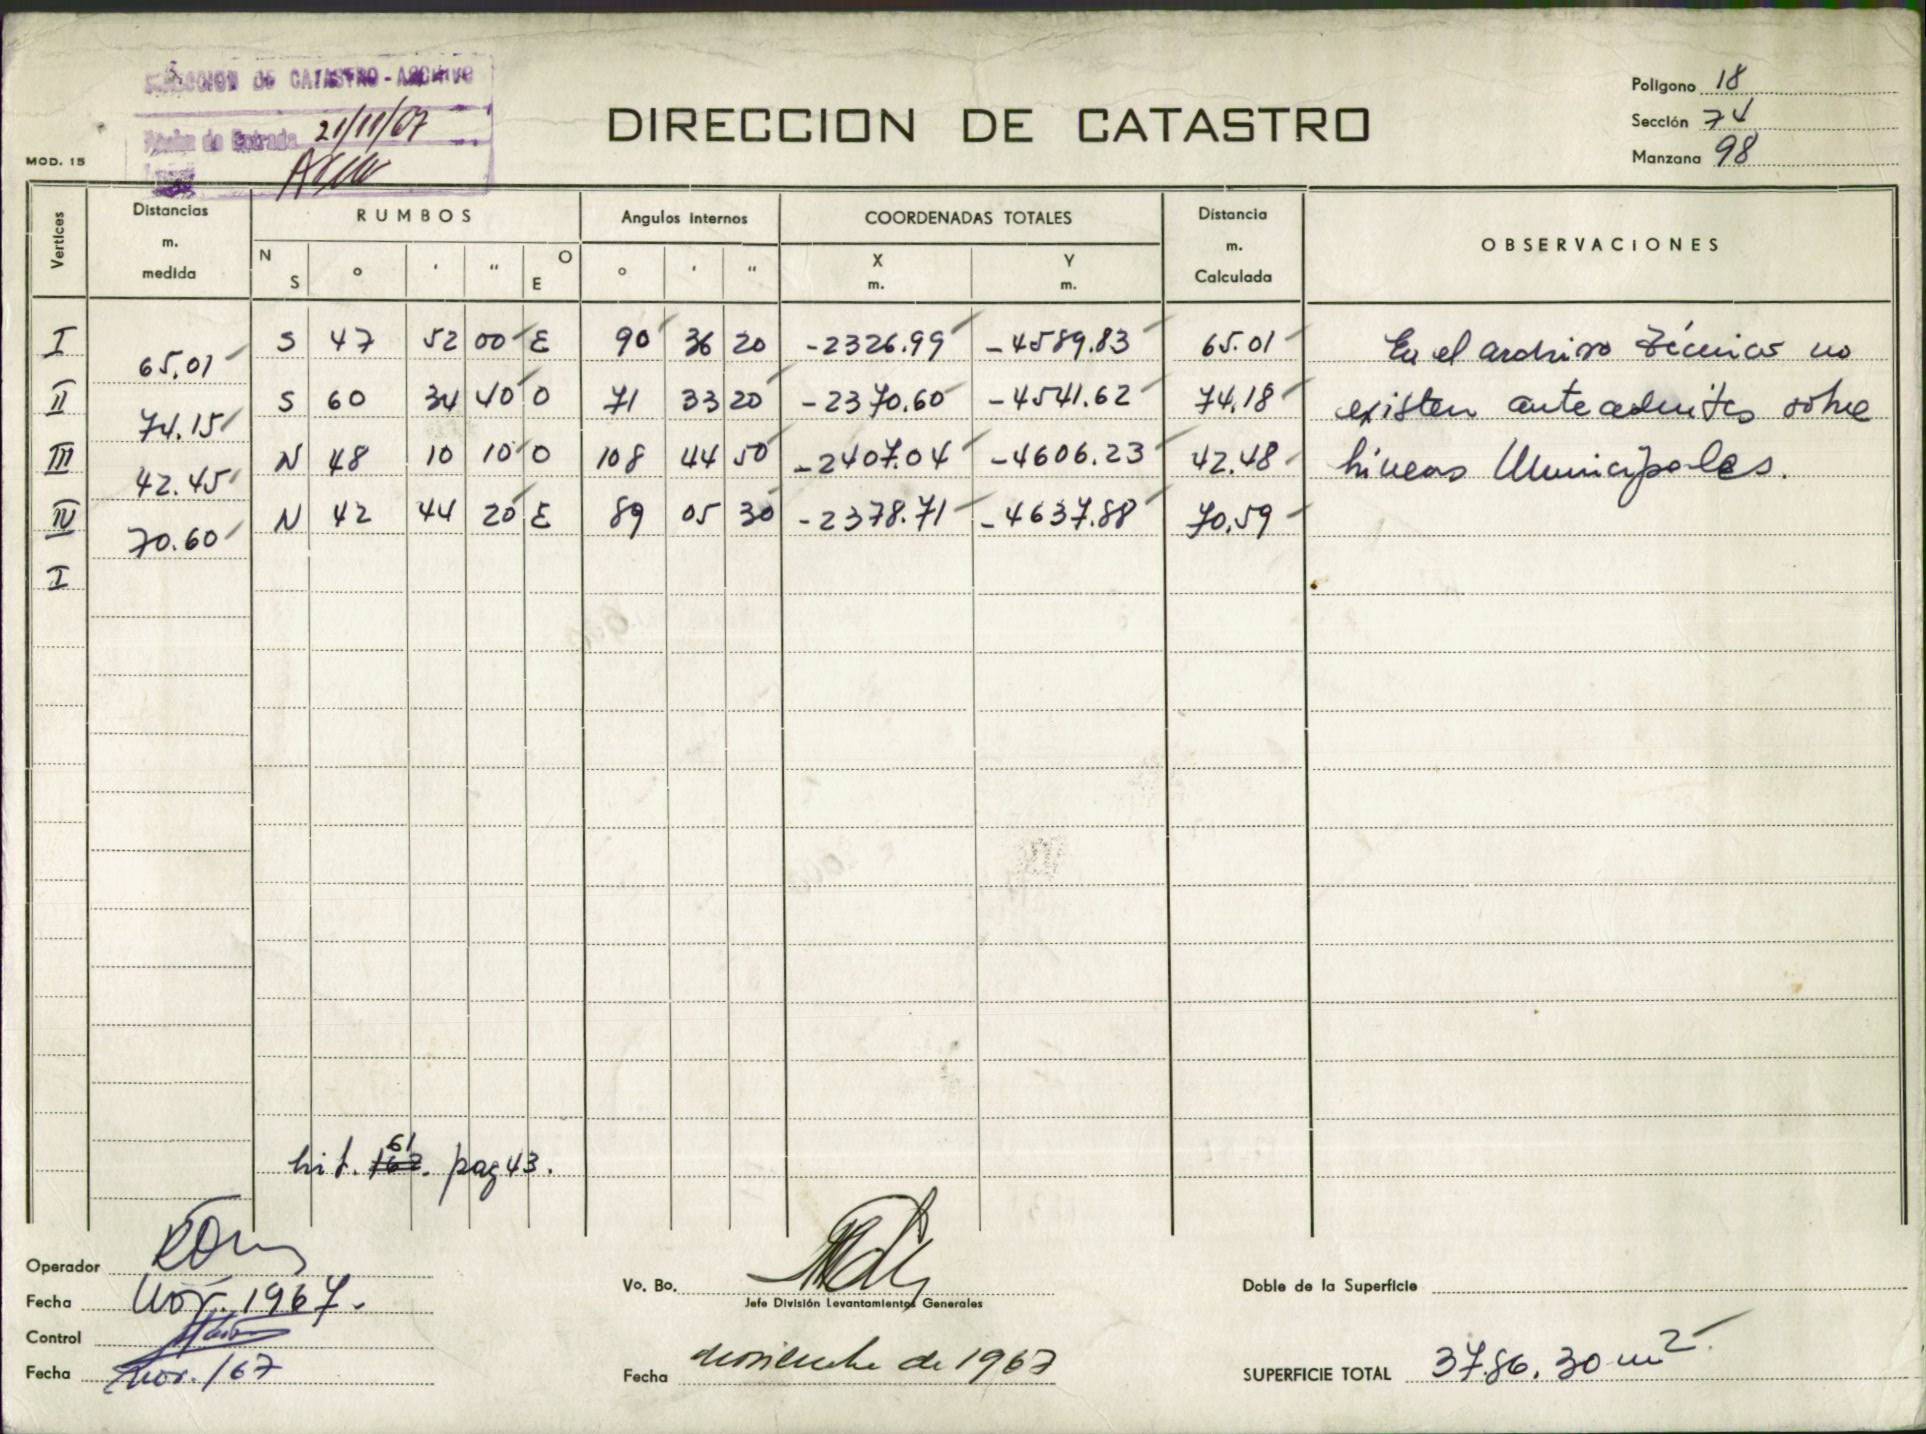 DIRECCION DE CATASTRO - ARCHIVO
Fecha de Entrada 21/11/67
MOD. 15
DIRECCION DE CATASTRO
Polígono 18
Sección 74
Manzana 98
Vertices
Distancias m. medida
RUMBOS
Angulos internos
COORDENADAS TOTALES
Distancia m. Calculada
OBSERVACIONES
N S ° ' " O E ° ' " X m. Y m.
I S 47 52 00 E 90 36 20 -2326.99 -4589.83 65.01 En el archivo técnicos no
65.01
II S 60 34 40 O 71 33 20 -2370.60 -4541.62 74.18 existen antecedentes sobre
74.15
III N 48 10 10 O 108 44 50 -2407.04 -4606.23 42.48 líneas Municipales.
42.45
IV N 42 44 20 E 89 05 30 -2378.71 -4637.88 70.59
70.60
I
61
lit. 162. pag 43.
Operador
Fecha Nov. 1967.
Control
Fecha Nov./67
Vo. Bo.
Jefe División Levantamientos Generales
Fecha noviembre de 1967
Doble de la Superficie
SUPERFICIE TOTAL 3786.30 m2.